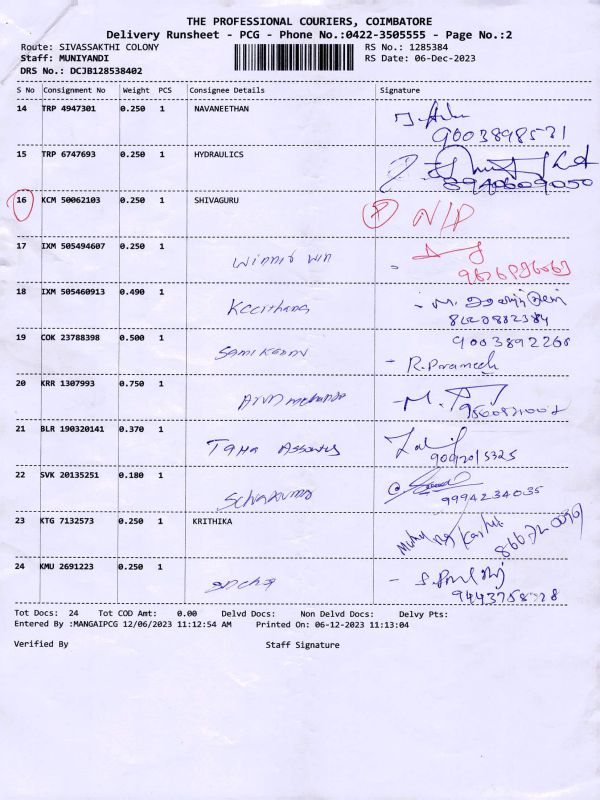 THE PROFESSIONAL COURIERS, COIMBATORE
Delivery Runsheet - PCG - Phone No.:0422-3505555 - Page No.:2
Route: SIVASSAKTHI COLONY RS No.: 1285384
Staff: MUNIYANDI RS Date: 06-Dec-2023
DRS No.: DCJB128538402
S No Consignment No Weight PCS Consignee Details Signature
14 TRP 4947301 0.250 1 NAVANEETHAN
9003898531
15 TRP 6747693 0.250 1 HYDRAULICS
8940609050
16 KCM 50062103 0.250 1 SHIVAGURU N/P
17 IXM 505494607 0.250 1 Winner win
18 IXM 505460913 0.490 1 Keerthana
19 COK 23788398 0.500 1 9003892266
R.Parameeh
20 KRR 1307993 0.750 1
21 BLR 190320141 0.370 1
9092015325
22 SVK 20135251 0.180 1
9994234035
23 KTG 7132573 0.250 1 KRITHIKA
24 KMU 2691223 0.250 1
Tot Docs: 24 Tot COD Amt: 0.00 Delvd Docs: Non Delvd Docs: Delvy Pts:
Entered By :MANGAIPCG 12/06/2023 11:12:54 AM Printed On: 06-12-2023 11:13:04
Verified By Staff Signature